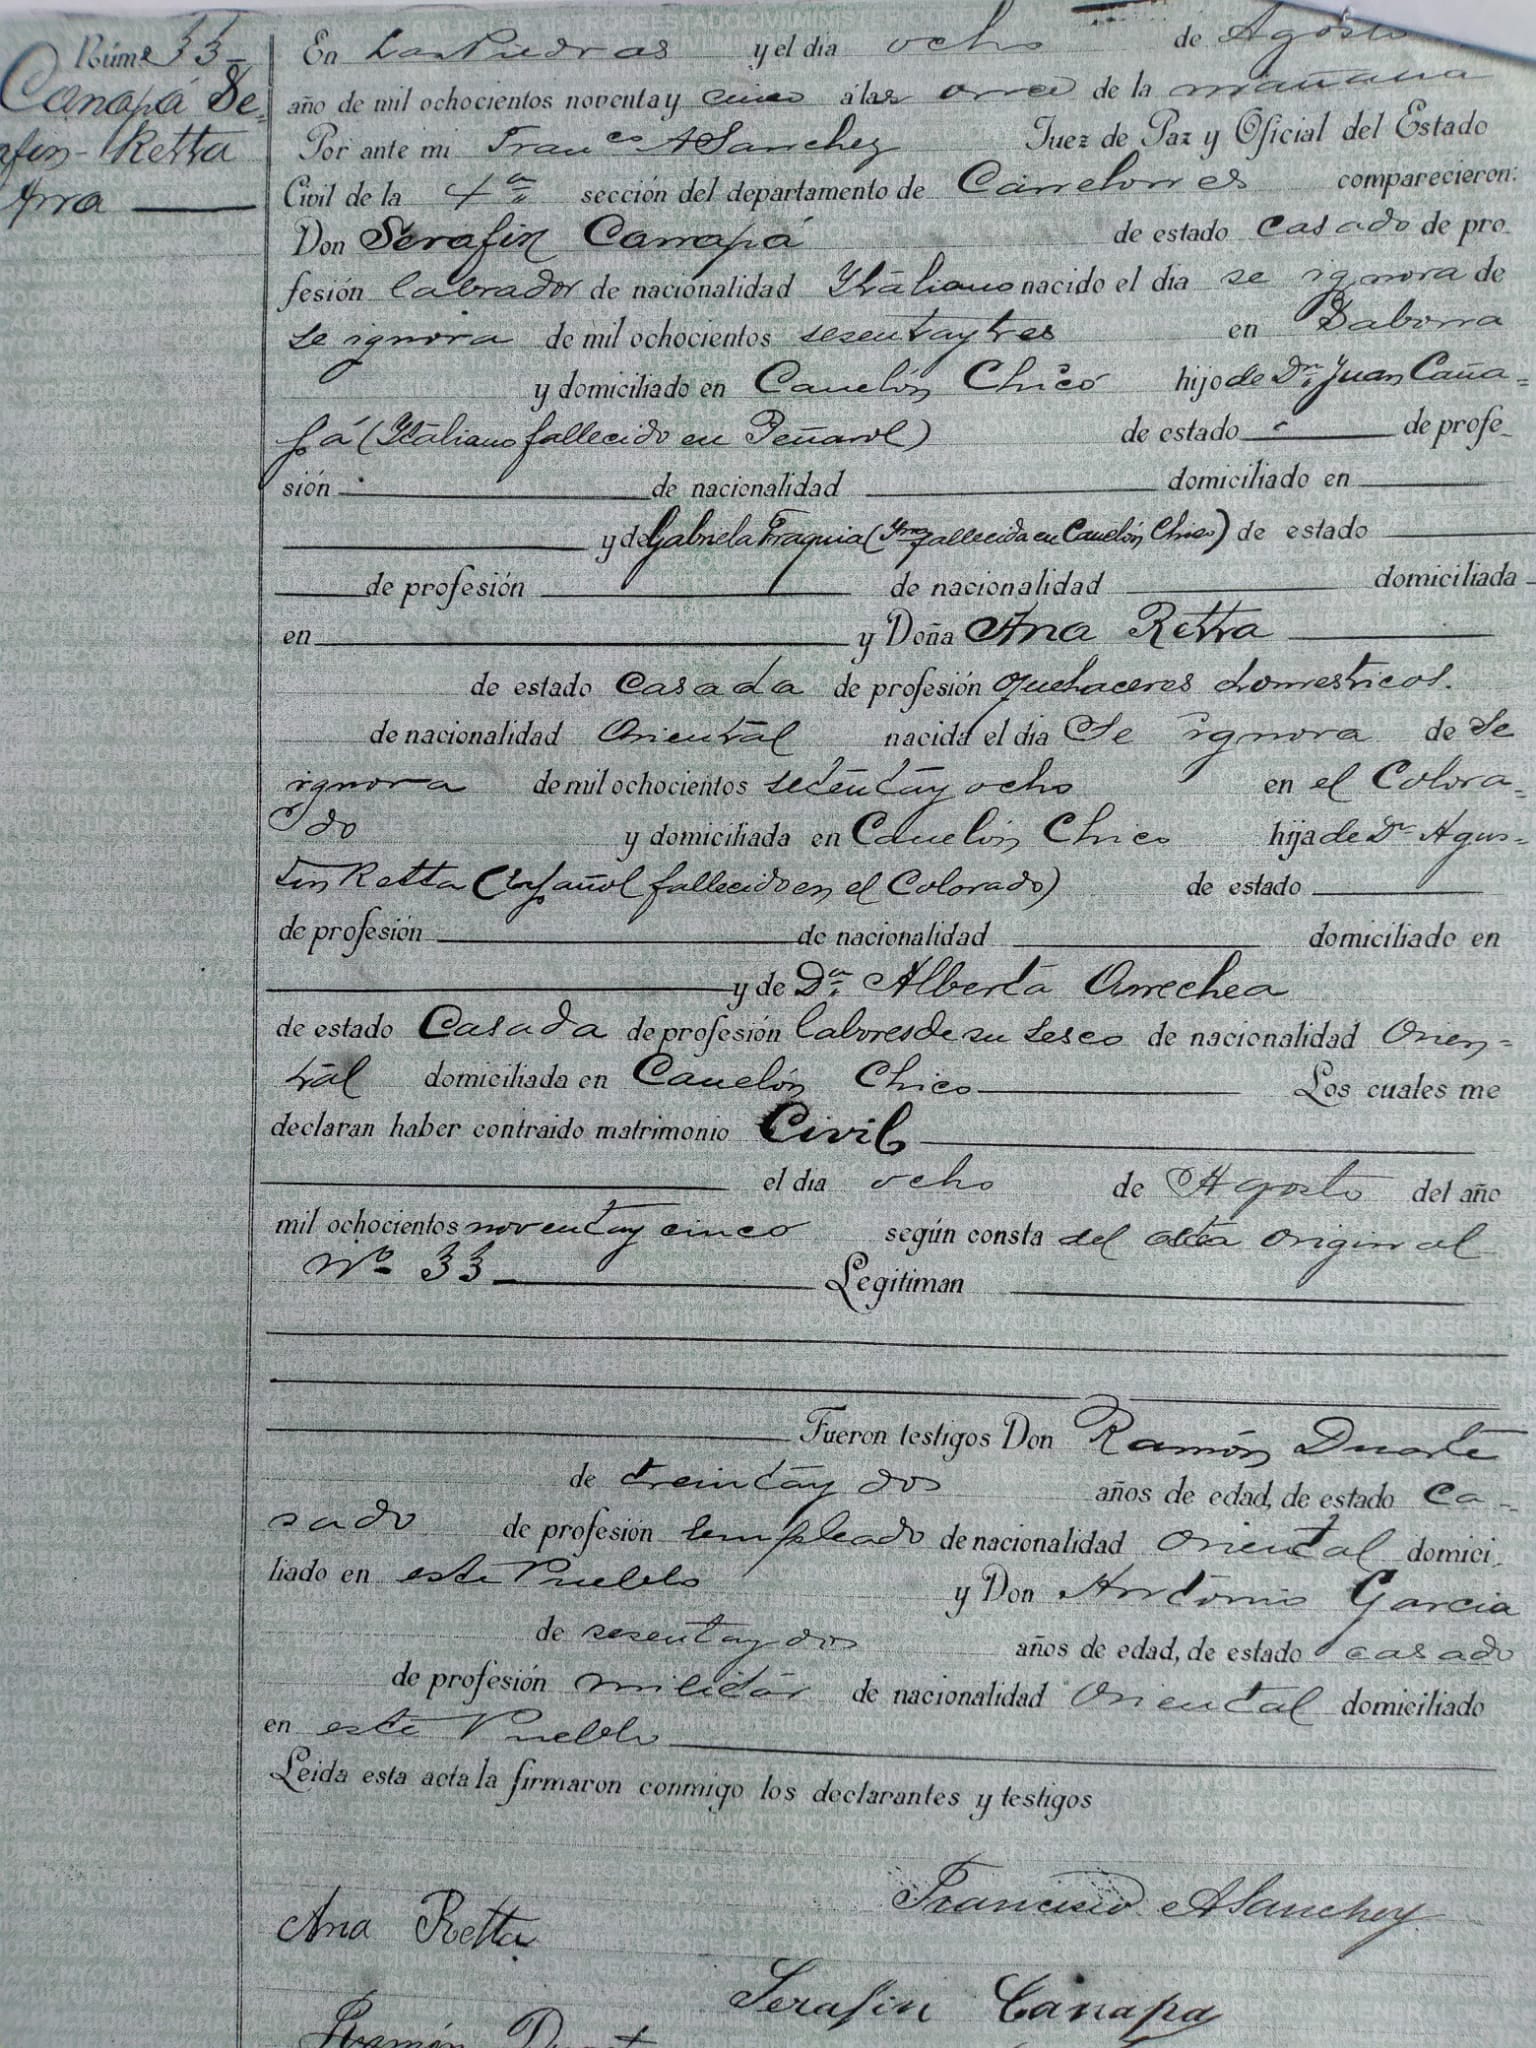 Núm. 33-
Canapá Se-
rafin-Retta
Ana
En Las Piedras y el dia ocho de Agosto
año de mil ochocientos noventa y cinco á las once de la mañana
Por ante mi Franco A Sanchez Juez de Paz y Oficial del Estado
Civil de la 4a sección del departamento de Canelones comparecieron:
Don Serafin Canapá de estado casado de pro-
fesión labrador de nacionalidad Ytaliano nacido el dia se ignora de
se ignora de mil ochocientos sesenta y tres en Sabona
y domiciliado en Canelón Chico hijo de Dn. Juan Caña-
pá (Ytaliano fallecido en Peñarol) de estado de profe-
sión de nacionalidad domiciliado en
y de Gabriela Fraquia (Yna fallecida en Canelón Chico) de estado
de profesión de nacionalidad domiciliada
en y Doña Ana Retta
de estado Casada de profesión quehaceres domesticos.
de nacionalidad Oriental nacida el dia Se ignora de Se
ignora de mil ochocientos setenta y ocho en el Colora-
do y domiciliada en Canelón Chico hija de Dn Agus-
tin Retta (Español fallecido en el Colorado) de estado
de profesión de nacionalidad domiciliado en
y de Da. Alberta Arrechea
de estado Casada de profesión labores de su secso de nacionalidad Orien-
tal domiciliada en Canelón Chico Los cuales me
declaran haber contraido matrimonio Civil
el dia ocho de Agosto del año
mil ochocientos noventa y cinco según consta del acta original
No 33 Legitiman
Fueron testigos Don Ramón Duarte
de treinta y dos años de edad, de estado Ca-
sado de profesión Empleado de nacionalidad Oriental domici-
liado en este Pueblo y Don Antonio Garcia
de sesenta y dos años de edad, de estado casado
de profesión militar de nacionalidad Oriental domiciliado
en este Pueblo
Leida esta acta la firmaron conmigo los declarantes y testigos
Francisco A Sanchez
Ana Retta
Serafin Canapa
Ramón Duarte